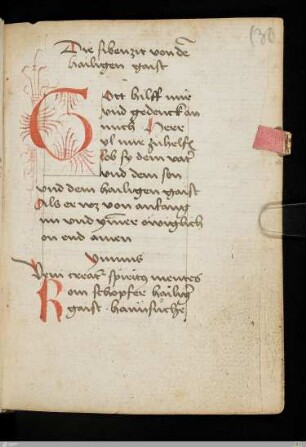 130
Die sibenzit von dē
hailigen gaist
Gott hilff mir
vnd gedenck an
mich Herr
yl mir zuhelfē
lob sy dem vatr̄
vnd dem son
vnd dem hailigen gaist
Als er waz von anfang
nu vnd ymer ewiglich
on end amen
ymnus
Veni creatr̄ spiritus mentes
Kom schopfer hailigr̄
gaist haimsuche